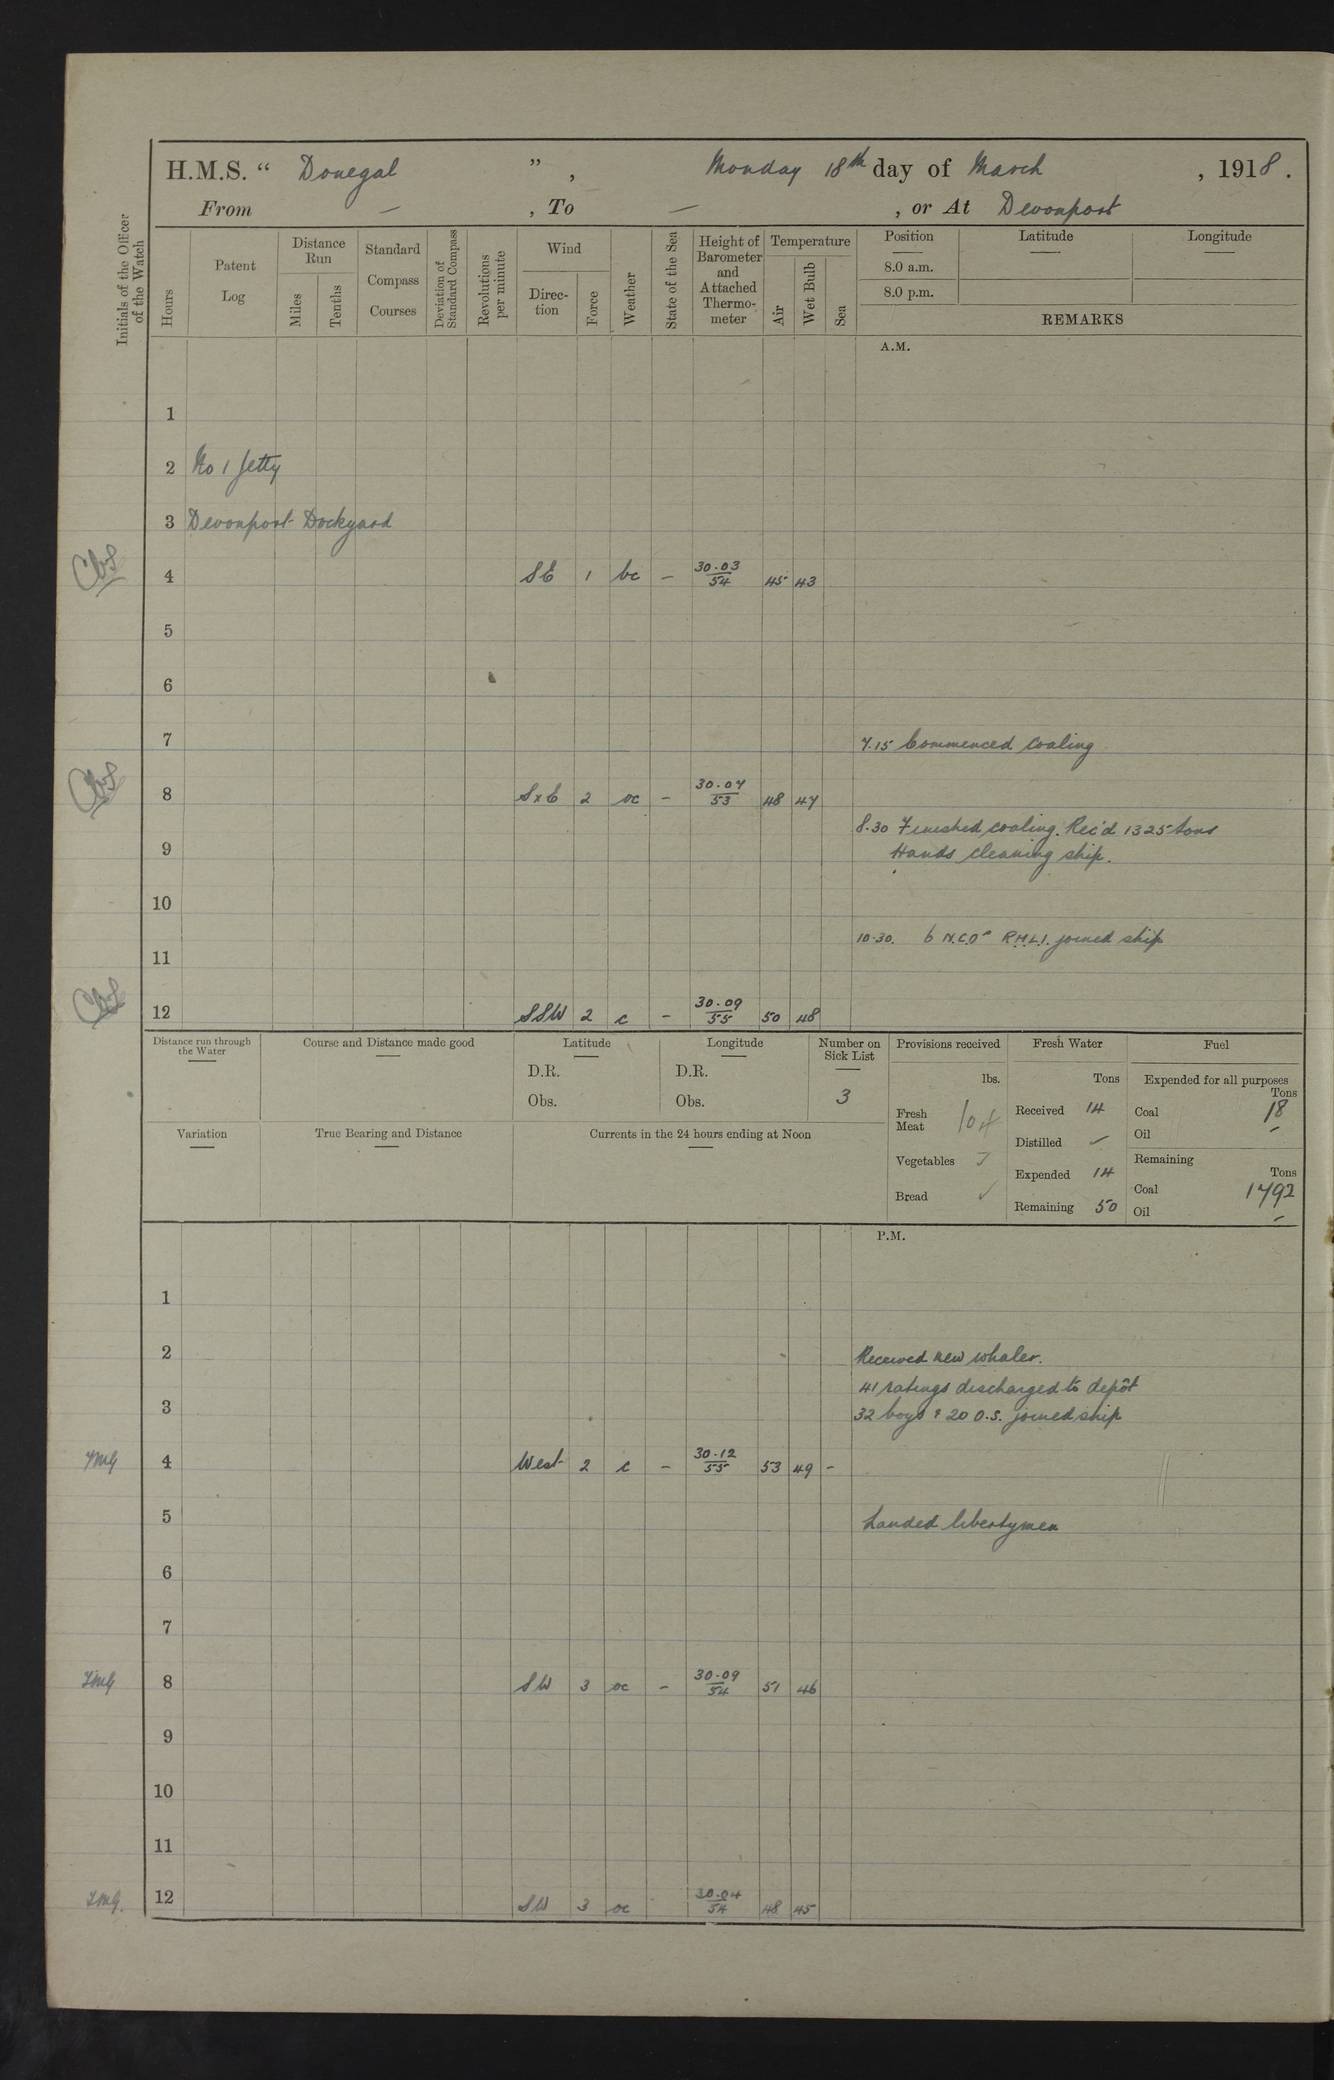 H.M.S. “ Donegal ”, Monday 18th day of March, 1918.
From — , To — , or At Devonport
Initials of the Officer of the Watch
Hours
Patent Log
Distance Run
Miles
Tenths
Standard Compass Courses
Deviation of Standard Compass
Revolutions per minute
Wind
Direc-tion
Force
Weather
State of the Sea
Height of Barometer and Attached Thermo-meter
Temperature
Air
Wet Bulb
Sea
Position Latitude Longitude
8.0 a.m.
8.0 p.m.
REMARKS
A.M.
1
2 No 1 Jetty
3 Devonport Dockyard
4 SE 1 bc — 30.03/54 45 43
5
6
7 7.15 Commenced coaling
8 SxE 2 oc — 30.07/53 48 47
8.30 Finished coaling. Rec'd 1325 tons
9 Hands cleaning ship.
10
10.30. 6 N.C.Os R.M.L.I. joined ship
11
12 SSW 2 c — 30.09/55 50 48
Distance run through the Water
Course and Distance made good
Latitude
D.R.
Obs.
Longitude
D.R.
Obs.
Number on Sick List
3
Provisions received
lbs.
Fresh Meat
Vegetables
Bread
Fresh Water
Tons
Received 14
Distilled
Expended 14
Remaining 50
Fuel
Expended for all purposes
Tons
Coal 18
Oil –
Remaining
Tons
Coal 1792
Oil –
Variation
True Bearing and Distance
Currents in the 24 hours ending at Noon
P.M.
1
2 Received new whaler.
41 ratings discharged to depôt
3 32 boys & 20 O.S. joined ship
4 West 2 c — 30.12/55 53 49 –
5 Landed libertymen
6
7
8 SW 3 oc — 30.09/54 51 46
9
10
11
12 SW 3 oc 30.04/54 48 45